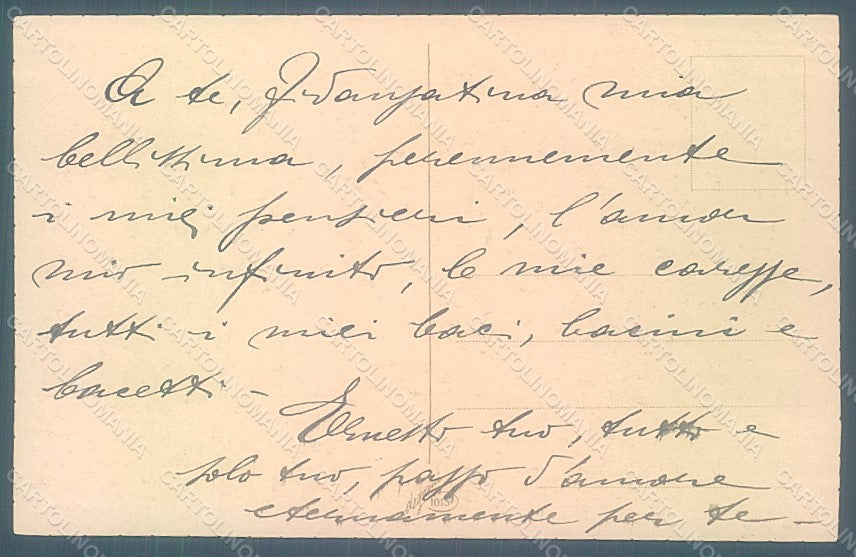 A te, Fidanzatina mia
bellissima, perennemente
i miei pensieri, l'amor
mio infinito, le mie carezze,
tutti i miei baci, bacini e
bacetti -
Ernesto tuo, tutto e
solo tuo, pazzo d'amore
eternamente per te -
CARTOLINOMANIA